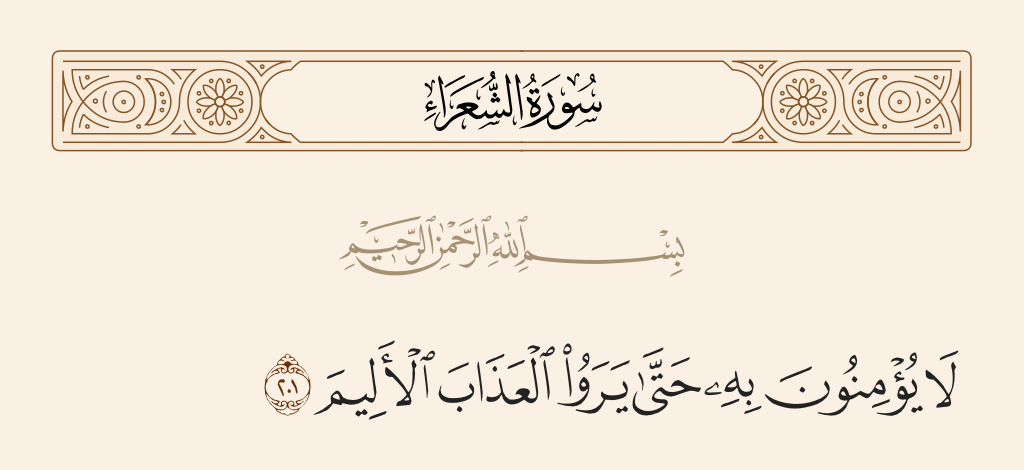 سُورَةُ الشُّعَرَاءِ
بِسْمِ ٱللَّهِ ٱلرَّحْمَٰنِ ٱلرَّحِيمِ
لَا يُؤْمِنُونَ بِهِۦ حَتَّىٰ يَرَوُا۟ ٱلْعَذَابَ ٱلْأَلِيمَ ٢٠١